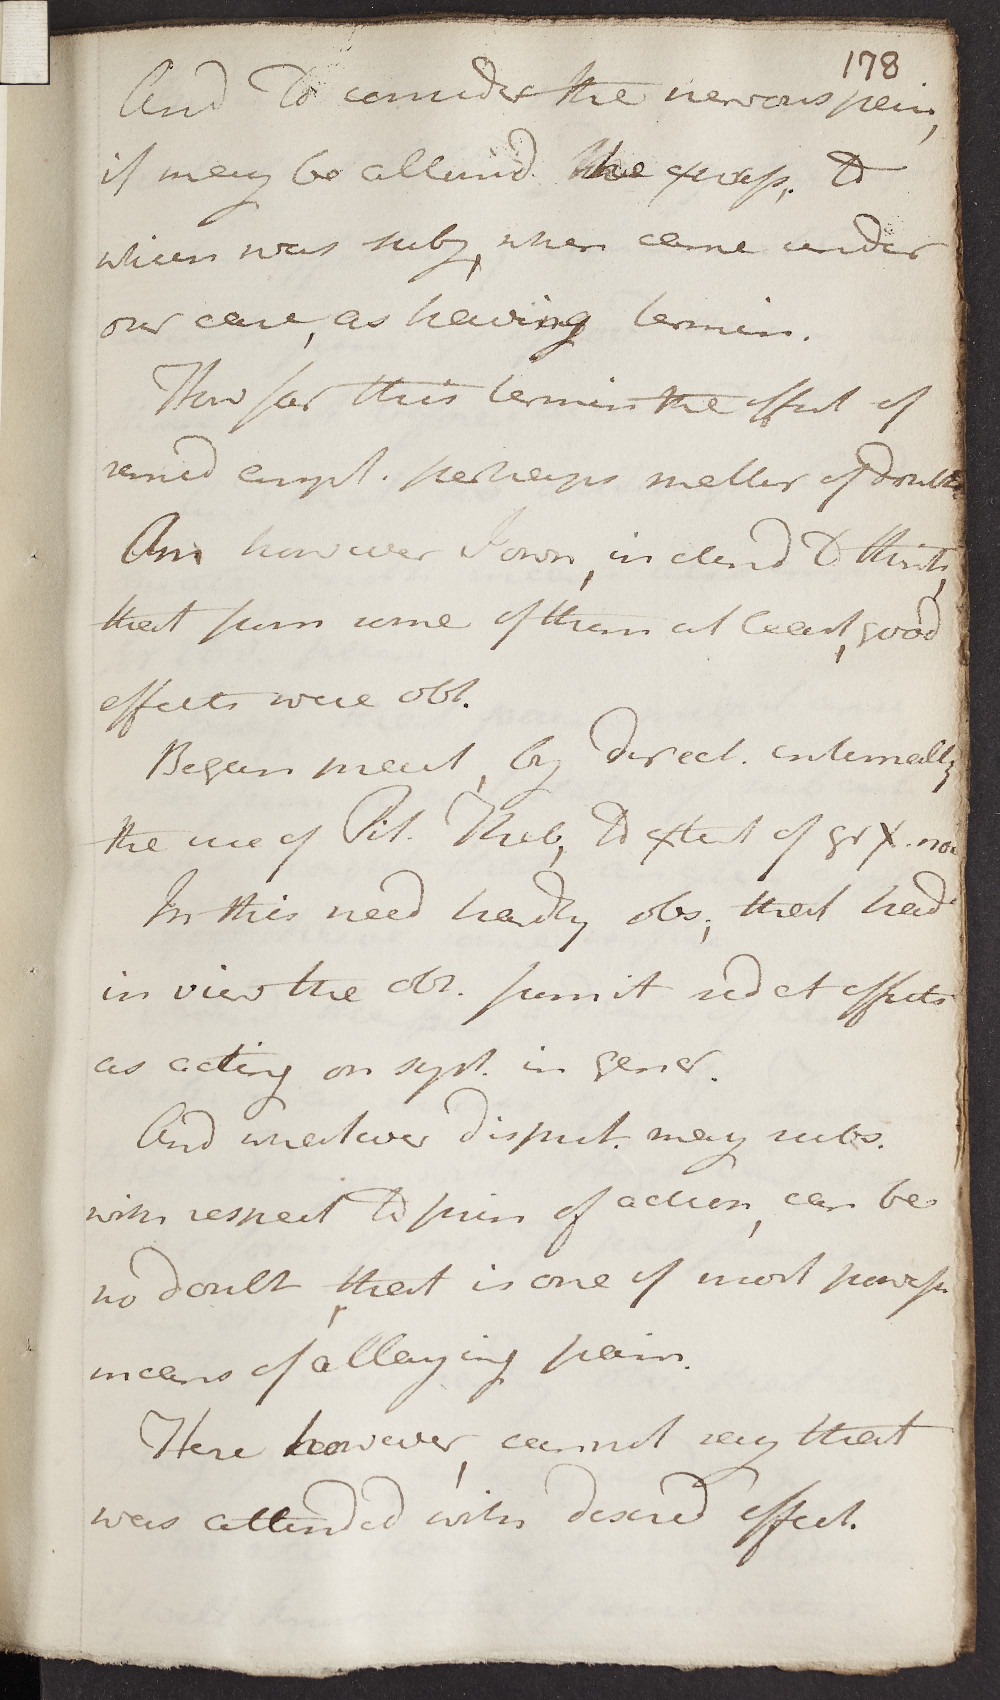 178
And to consider the nervous pain,
if may be allow'd the express. to
which was subj, when came under
our care, as having termin.
How far this termin the effect of
remed empl. perhaps matter of doubt.
Am however I own, inclind to think,
that from some of them at least, good
effects were obt.
Began meat, by direct. internally
the use of Pil. Theb, to extent of gr x.
In this need hardly obs, that had
in view the obt. from it sedat effects
as acting on syst. in gener.
And whatever disput. may subs.
with respect to prin of action, can be
no doubt, that is one of most powerf
means of allaying pain.
Here however, cannot say that
was attended with desired effect.